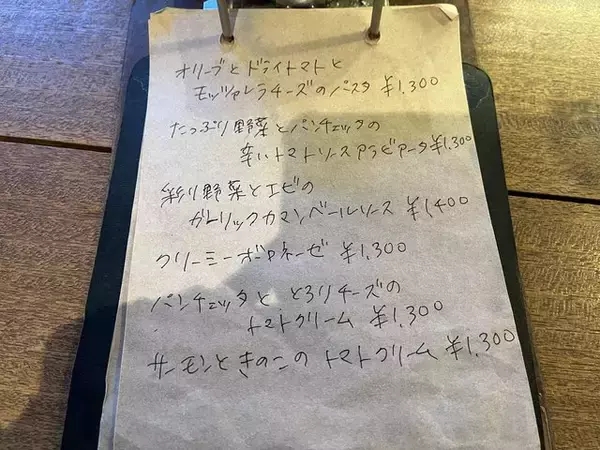 オリーブとドライトマトと
モッツァレラチーズのパスタ ¥1,300
たっぷり野菜とパンチェッタの
辛いトマトソースアラビアータ ¥1,300
彩り野菜とエビの
ガーリックカマンベールソース ¥1,400
クリーミーボロネーゼ ¥1,300
パンチェッタと とろりチーズの
トマトクリーム ¥1,300
サーモンときのこの トマトクリーム ¥1,300